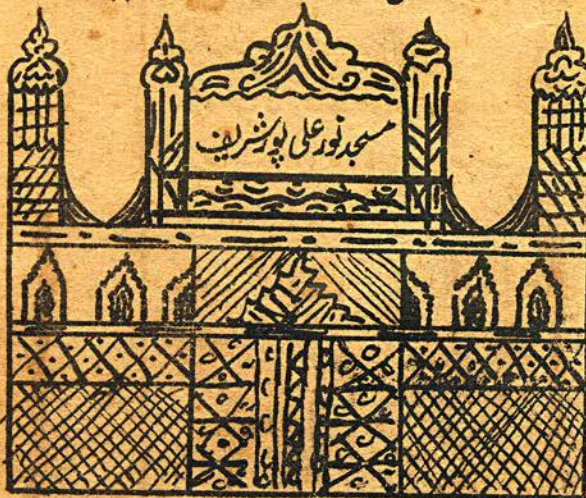 مسجد نور علی پور شریف